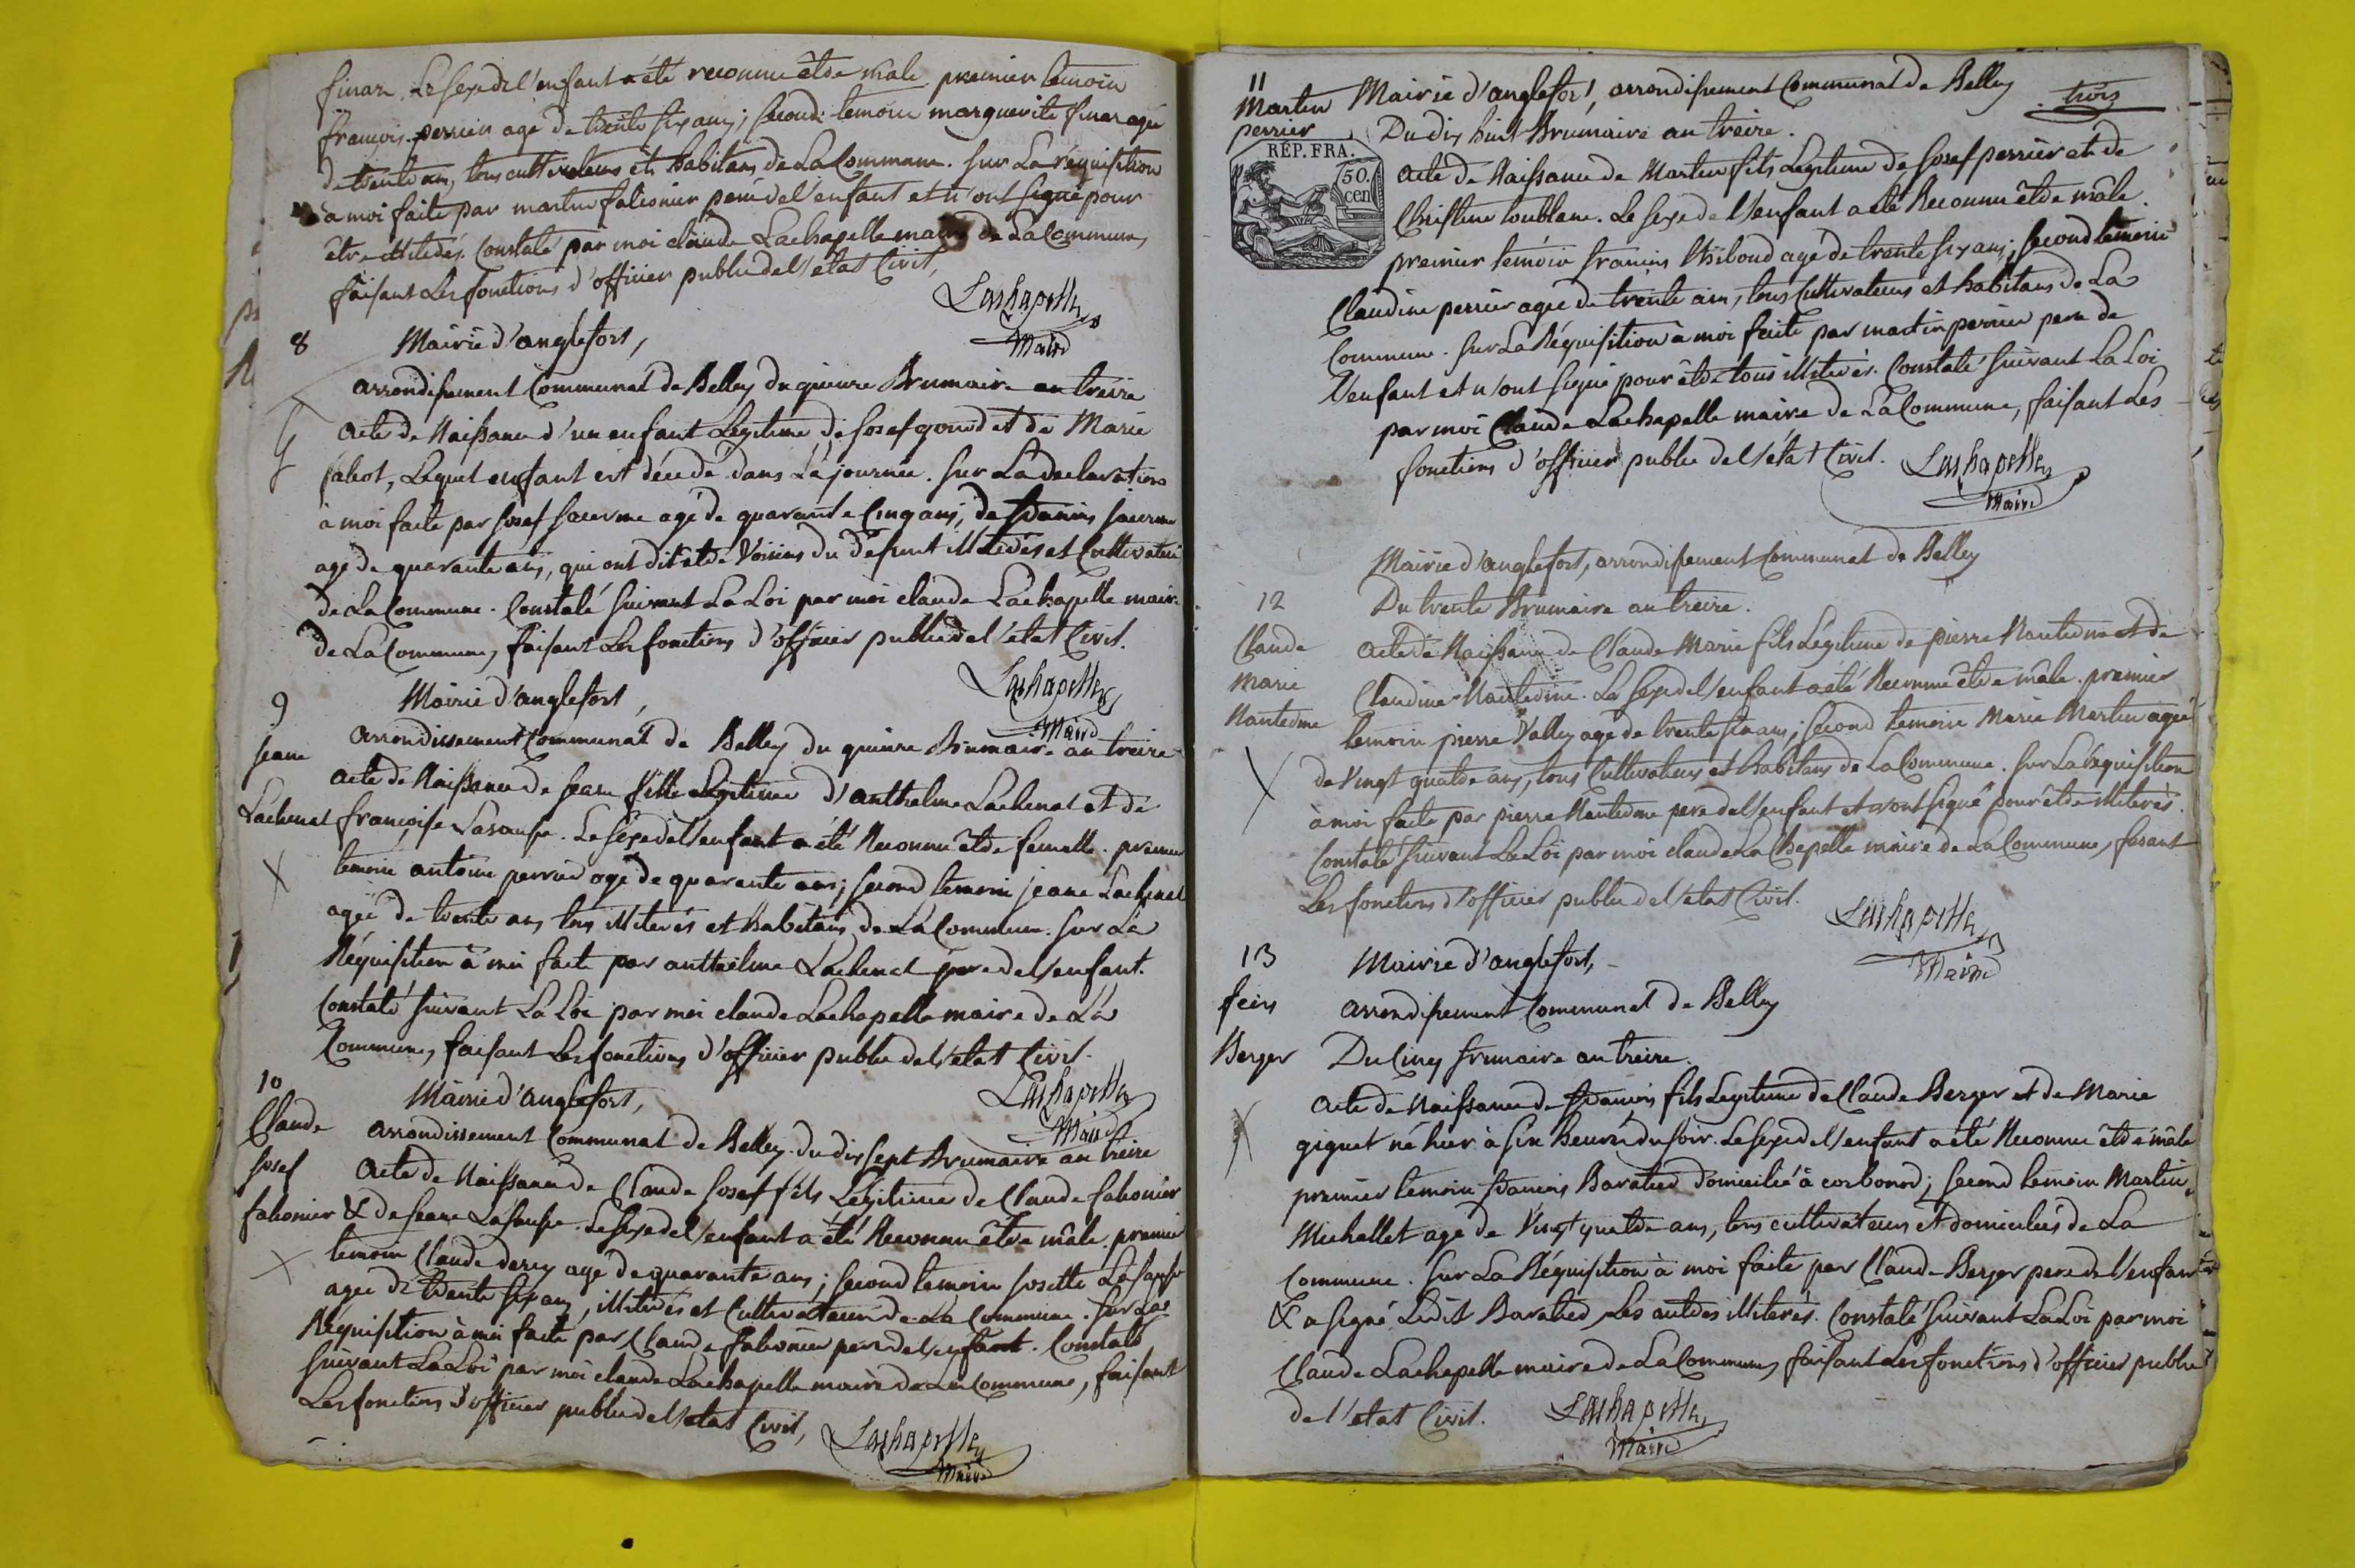 finar. Le sexe de l'enfant a été reconnu être mâle. premier temoin
françois perrier agé de trente six ans; second temoin marguerite finar agée
de trente ans, tous cultivateurs et habitans de La Commune. Sur La réquisition
à moi faite par martin falionier pere de l'enfant et n'ont signé pour
être illiterés. Constaté par moi claude Lachapelle maire de La Commune,
faisant Les fonctions d'officier public de l'état Civil,
Lachapelle
Maire
8
Mairie d'anglefort,
arrondissement Communal de Belley du quinze Brumaire an treize
acte de Naissance d'un enfant Légitime de Josef goind et de Marie
Lequel enfant est décedé dans La journée. Sur La declaration
à moi faite par Josef agé de quarante Cinq ans, de françois
agé de quarante ans, qui ont dit être Voisins du défunt illiterés et Cultivateurs
de La Commune. Constaté suivant La Loi par moi claude Lachapelle maire
de La Commune, faisant Les fonctions d'officier public de l'état Civil.
Lachapelle
Maire
9
Mairie d'anglefort,
arrondissement Communal de Belley du quinze Brumaire an treize
Jeane
acte de Naissance de Jeane fille Légitime d'anthelme Lachenal et de
Lachenal
françoise Lasausse. Le sexe de l'enfant a été Reconnu être femelle. premier
temoin antoine perrier agé de quarante ans; second temoin jeane Lachenal
agée de trente ans tous illiterés et habitans de La Commune. Sur La
Réquisition à moi faite par anthelme Lachenal pere de l'enfant.
Constaté suivant La Loi par moi claude Lachapelle maire de La
Commune, faisant Les fonctions d'officier public de l'etat Civil.
Lachapelle
Maire
10
Mairie d'anglefort,
Claude
arrondissement Communal de Belley du dix sept Brumaire an treize
Josef
acte de Naissance de Claude Josef fils Légitime de Claude falionier
falionier
& de Jeane Lasausse. Le sexe de l'enfant a été Reconnu être mâle. premier
temoin Claude derey agé de quarante ans; second temoin Josette Lasausse
agée de trente six ans, illiterés et Cultivateurs de La Commune. Sur La
Réquisition à moi faite par Claude falionier pere de l'enfant. Constaté
suivant La Loi par moi claude Lachapelle maire de La Commune, faisant
Les fonctions d'officier public de l'etat Civil,
Lachapelle
Maire
11
Martin
perrier
Mairie d'anglefort, arrondissement Communal de Belley
trois
Du dix huit Brumaire an treize.
RÉP. FRA.
50.
cen
acte de Naissance de Martin fils Legitime de Josef perrier et de
Christine loublanc. Le sexe de l'enfant a été Reconnu être mâle.
premier temoin françois thiboud agé de trente six ans; second temoin
Claudine perrier agée de trente ans, tous Cultivateurs et habitans de La
Commune. Sur La Réquisition à moi faite par martin perrier pere de
l'enfant et n'ont signé pour être tous illiterés. Constaté suivant La Loi
par moi Claude Lachapelle maire de La Commune, faisant Les
fonctions d'officier public de l'état Civil.
Lachapelle
Maire
12
Mairie d'anglefort, arrondissement Communal de Belley
Du trente Brumaire an treize.
Claude
Marie
Nantedme
acte de Naissance de Claude Marie fils Légitime de pierre Nantedme et de
Claudine Nantedme. Le sexe de l'enfant a été Reconnu être mâle. premier
temoin pierre Valley agé de trente six ans; second temoin Marie Martin agée
de Vingt quatre ans, tous Cultivateurs et habitans de La Commune. Sur La réquisition
à moi faite par pierre Nantedme pere de l'enfant et n'ont signé pour être illiterés.
Constaté suivant La Loi par moi claude La Chapelle maire de La Commune, fesant
Les fonctions d'officier public de l'etat Civil.
Lachapelle
Maire
13
Mairie d'anglefort,
arrondissement Communal de Belley
Berger
Du Cinq frimaire an treize.
acte de Naissance de françois fils Legitime de Claude Berger et de Marie
giguet né hier à six heures du soir. Le sexe de l'enfant a été Reconnu être mâle
premier temoin françois Baratier domicilié à corbonod; second temoin Martin
Michellet agé de Vingt quatre ans, tous cultivateurs et domiciliés de La
Commune. Sur La Réquisition à moi faite par Claude Berger pere de l'enfant
& a signé Ledit Baratier Les autres illiterés. Constaté suivant La Loi par moi
Claude Lachapelle maire de La Commune, faisant Les fonctions d'officier public
de l'etat Civil.
Lachapelle
Maire